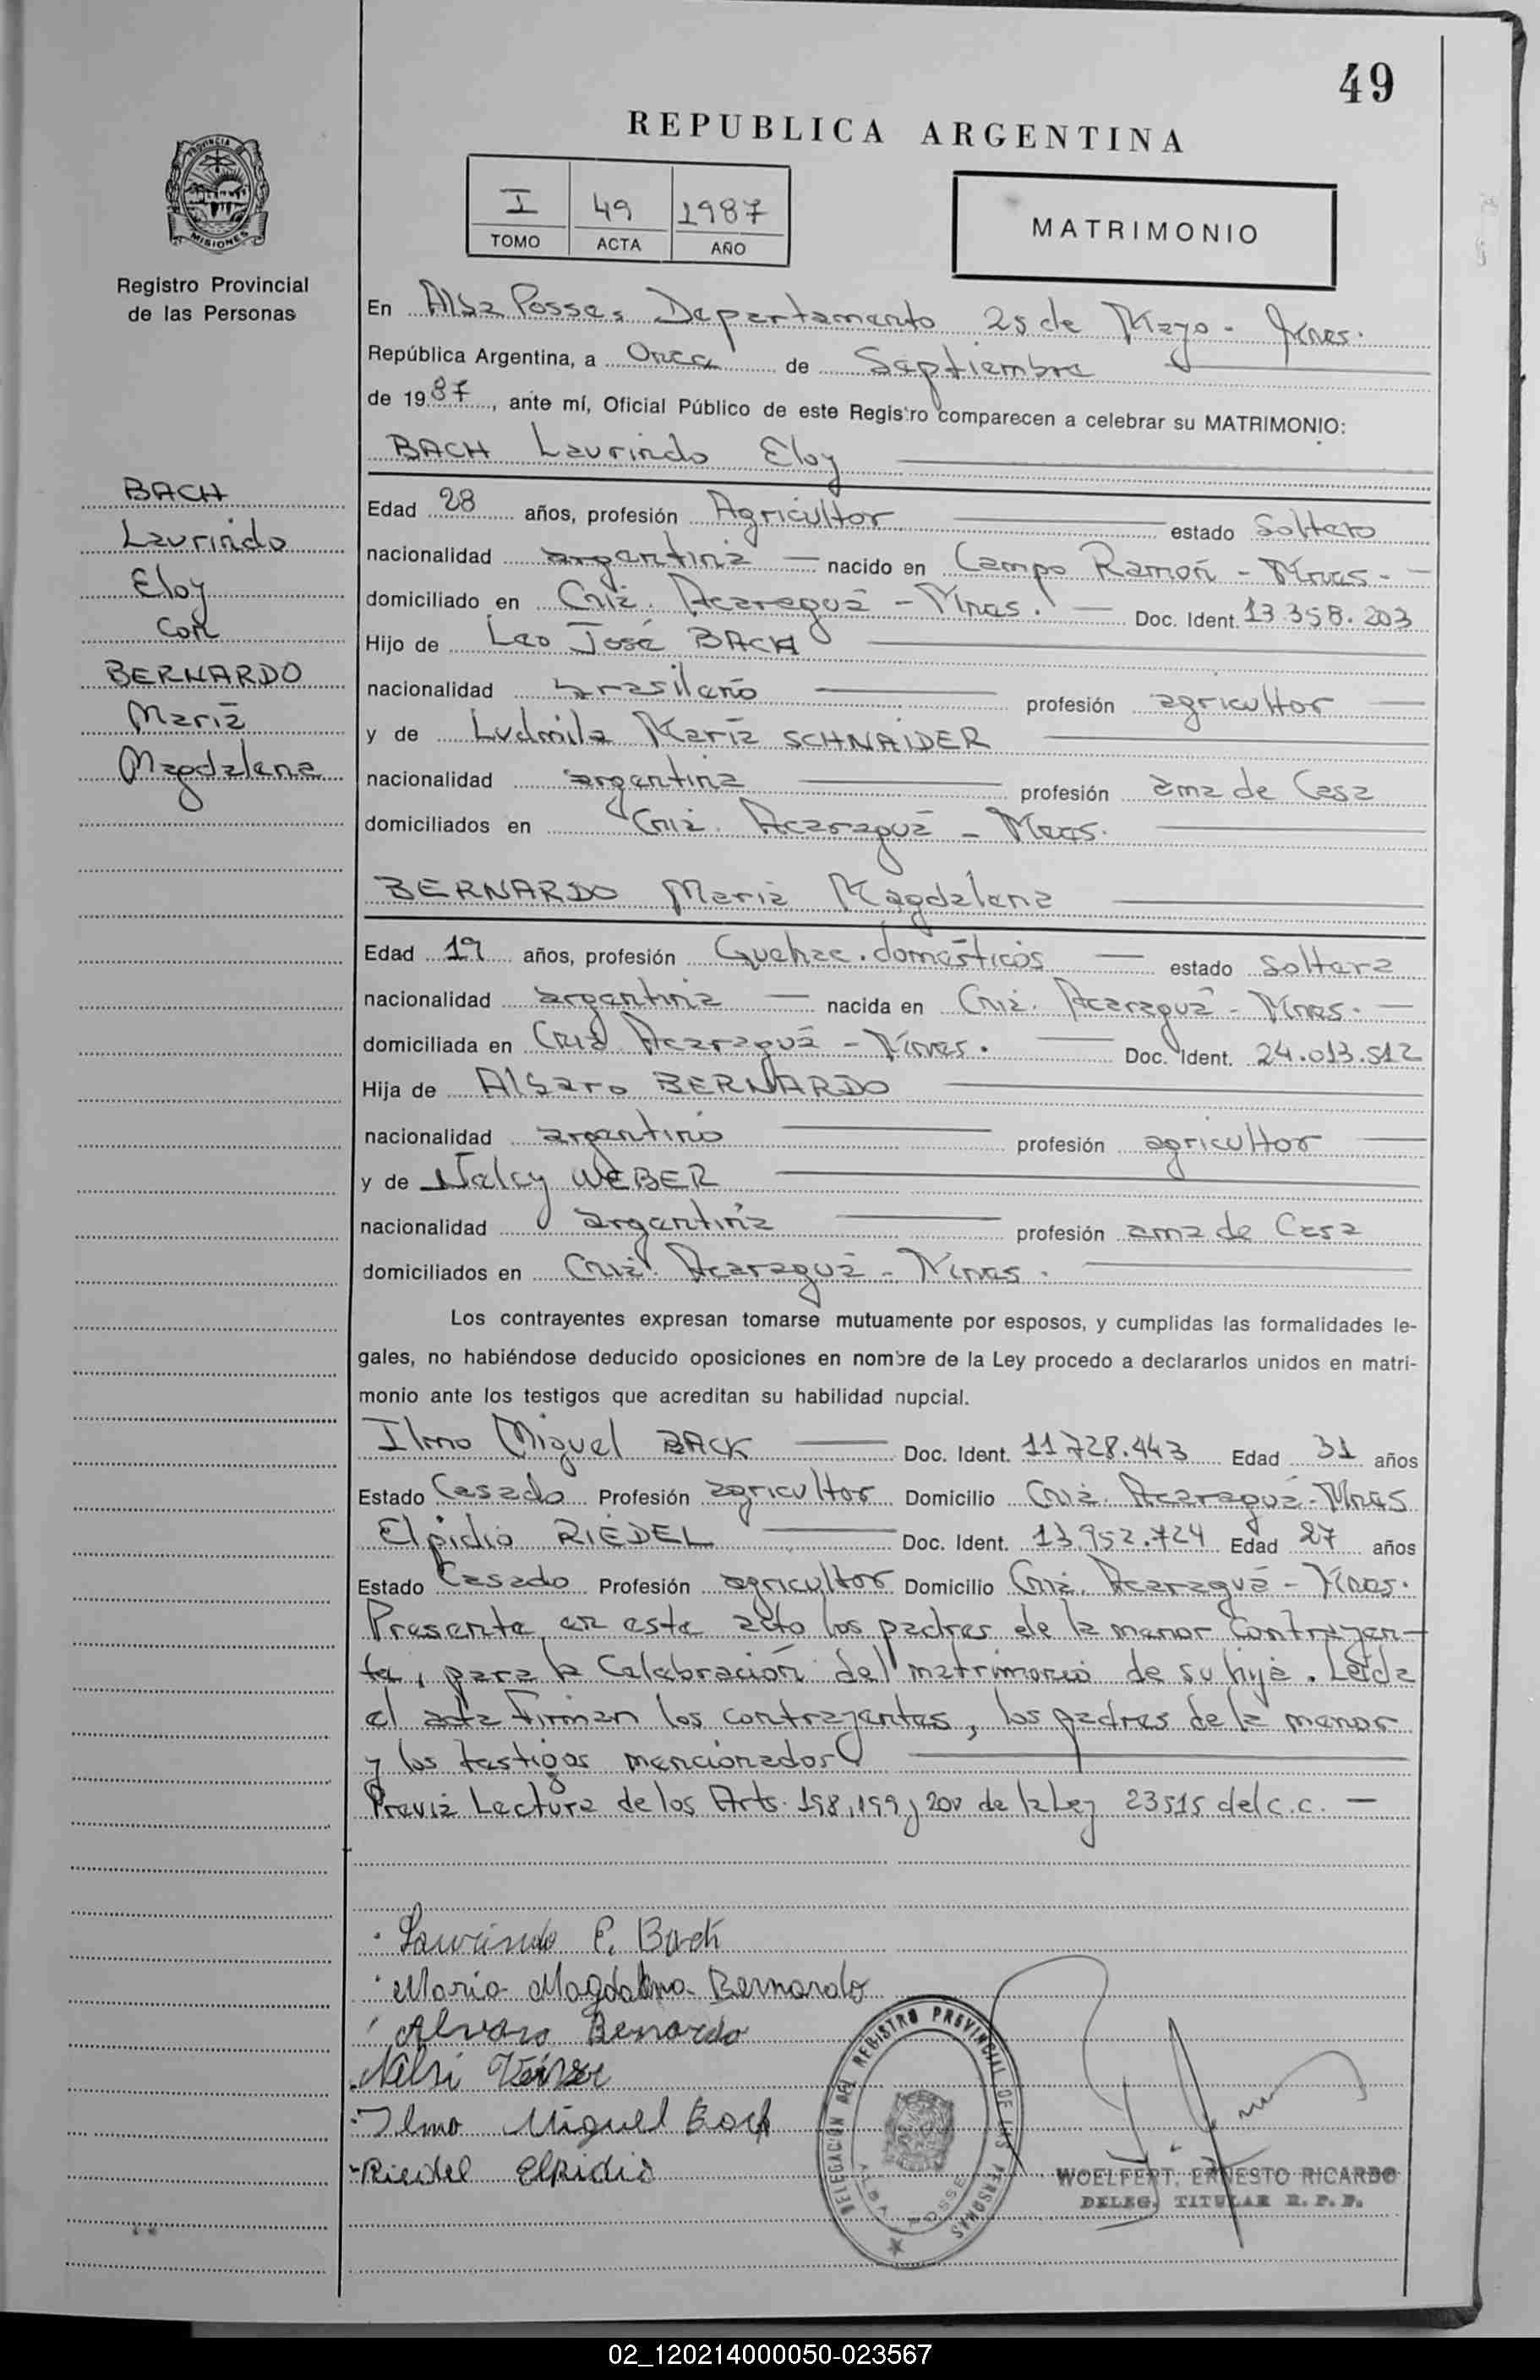 49
REPUBLICA ARGENTINA
I 49 1987
TOMO ACTA AÑO
MATRIMONIO
PROVINCIA DE MISIONES
Registro Provincial
de las Personas
En Alba Posse, Departamento 25 de Mayo - Mnes.
República Argentina, a Once de Septiembre
de 1987, ante mí, Oficial Público de este Registro comparecen a celebrar su MATRIMONIO:
BACH Laurindo Eloy
BACH
Laurindo
Eloy
con
BERNARDO
María
Magdalena
Edad 28 años, profesión Agricultor estado Soltero
nacionalidad argentina nacido en Campo Ramón - Mnes.
domiciliado en Cnia. Acaraguá - Mnes. Doc. Ident. 13.358.203
Hijo de Leo José BACH
nacionalidad brasileño profesión agricultor
y de Ludmila María SCHNAIDER
nacionalidad argentina profesión ama de Casa
domiciliados en Cnia. Acaraguá - Mnes.
BERNARDO María Magdalena
Edad 19 años, profesión Quehac. domésticos estado Soltera
nacionalidad argentina nacida en Cnia. Acaraguá - Mnes.
domiciliada en Cnia. Acaraguá - Mnes. Doc. Ident. 24.013.512
Hija de Albaro BERNARDO
nacionalidad argentino profesión agricultor
y de Nelcy WEBER
nacionalidad argentina profesión ama de Casa
domiciliados en Cnia. Acaraguá - Mnes.
Los contrayentes expresan tomarse mutuamente por esposos, y cumplidas las formalidades le-
gales, no habiéndose deducido oposiciones en nombre de la Ley procedo a declararlos unidos en matri-
monio ante los testigos que acreditan su habilidad nupcial.
Ilmo Miguel BACK Doc. Ident. 11.728.443 Edad 31 años
Estado Casado Profesión agricultor Domicilio Cnia. Acaraguá - Mnes
Elpidio RIEDEL Doc. Ident. 13.952.724 Edad 27 años
Estado Casado Profesión agricultor Domicilio Cnia. Acaraguá - Mnes.
Presente en este acto los padres de la menor contrayen-
te, para la Celebración del matrimonio de su hija. Leída
el acta Firman los contrayentes, los padres de la menor
y los testigos mencionados
Previa Lectura de los Arts. 198, 199 y 200 de la Ley 23515 del c.c.
Laurindo E. Bach
Maria Magdalena Bernardo
Alvaro Benardo
Nelsi
Ilmo Miguel Back
Riedel Elpidio
DELEGACION DEL REGISTRO PROVINCIAL DE LAS PERSONAS
ALBA POSSE
WOELFERT, ERNESTO RICARDO
DELEG. TITULAR R. P. P.
02_120214000050-023567